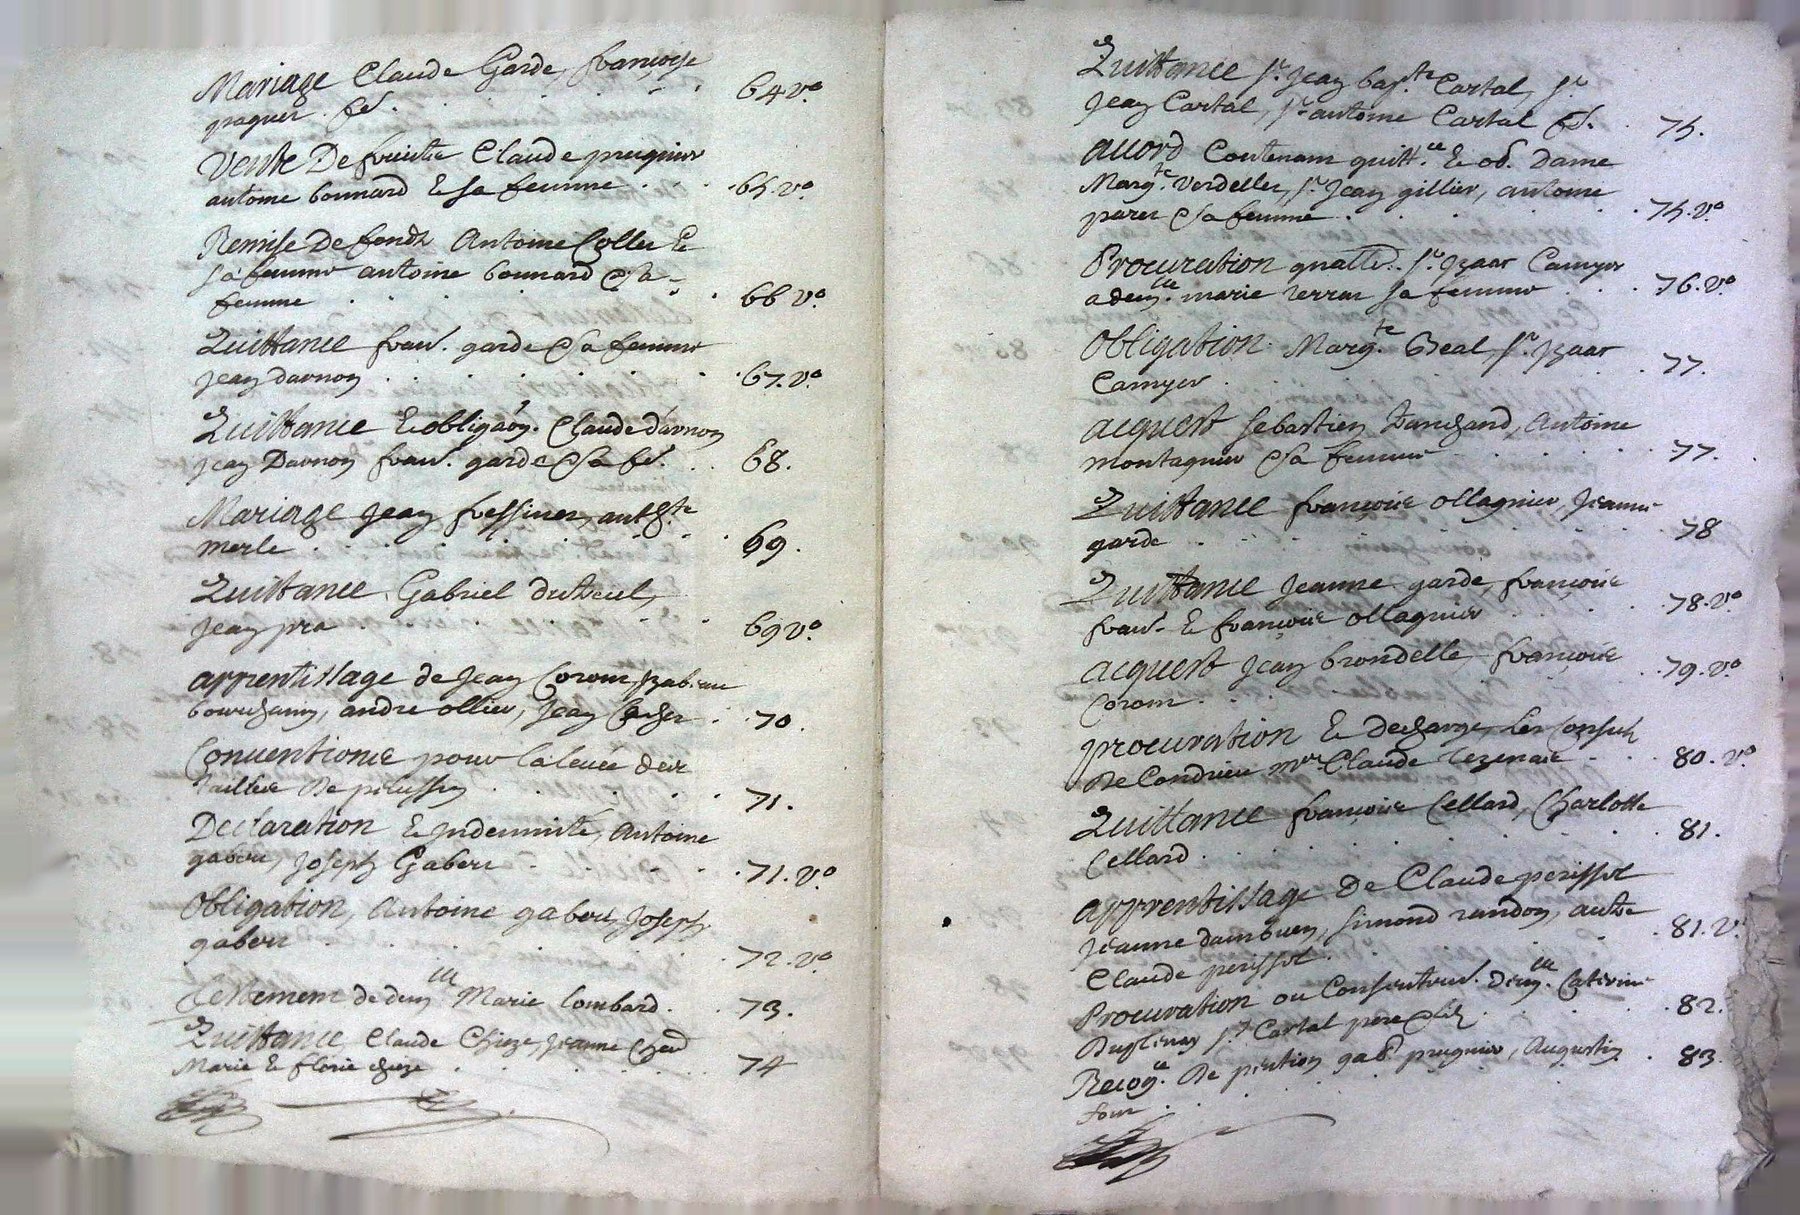 Mariage Claude Garde, françoise
paquet. fe. . . . . . . 64 v°
Vente De fruits Claude prugnier
antoine bonnard & sa femme . . . 65. v°.
Remise De fonds Antoine Collet &
sa femme antoine bonnard & sa
femme . . . . . . . 66 v°.
Quittance franc. garde & sa femme
jean Darnon . . . . . . 67. v°.
Quittance & obligaon. Claude darnon
jean Darnon franc. garde & sa fe. . . 68.
Mariage jean fressinet, anth.tte
merle . . . . . . . 69.
Quittance. Gabriel duteul,
jean pra . . . . . . 69 v°.
apprentissage de jean Coront, izabeau
bourchanin, andre ollier, jean . 70.
Conventions pour la levée des
tailles de pelussin . . . . . 71.
Declaration & jndemnité, Antoine
gabert, joseph Gabert . . . . . 71. v°.
Obligation, Antoine gabert, joseph
gabert . . . . . . . 72. v°.
Testement de dem.lle Marie lombard . . 73.
Quittance Claude Chieze, jeanne
Marie & florie chieze . . . . . 74
Quittance sr. jean bap.te Cartal, sr
jean Cartal, sr antoine Cartal fe. . 75.
accord Contenant quitt.ce & ob. Dame
Marg.te verdellet, sr. jean gillier, antoine
paret & sa femme . . . . . . 75. v°.
Procuration sr. izaac Camyer
a dem.lle marie terras sa femme . . . 76. v°
Obligation. Marg.te Beal, sr. izaac
Camyer . . . . . . . 77.
acquest sebastien tanchard, Antoine
montagnier & sa femme . . . . . 77.
Quittance françoise ollagnier, jeanne
garde . . . . . . . 78
Quittance jeanne garde, françoise
franc. & françoise ollagnier . . . . 78. v°
acquest jean brondelle, françoise
Coront . . . . . . . 79. v°
procuration & decharge, les Consuls
de Condrieu mre Claude . . . 80. v°
Quittance françoise Cellard, Charlotte
Cellard . . . . . . . 81.
apprentissage De Claude perissol
jeanne dambuen, simond randon, autre
Claude perissol . . . . . . 81. v°
Procuration ou Consentem. dem.lle Caterine
Duplenay sr Cartal pere & fils . . . 82.
Recog.ce de pention gab.l prugnier, Augustin . 83
four . . . .